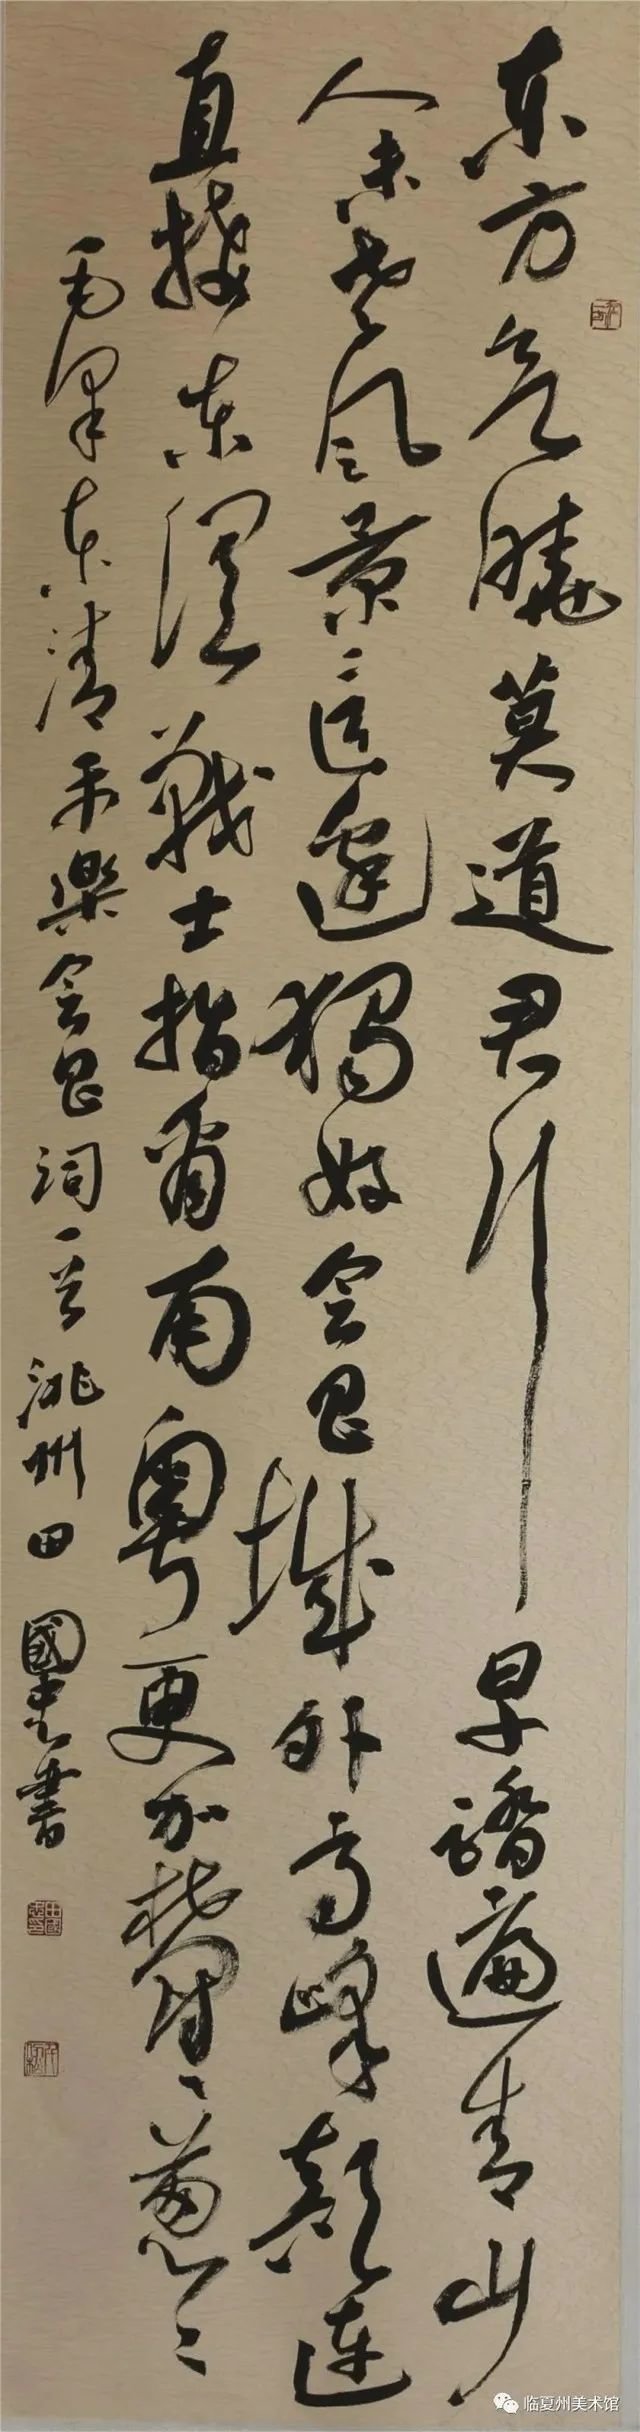 东方欲曉莫道君行早踏遍青山
人未老风景這邊獨好会昌城外高峰顛连
直接东溟戰士指看南粵更加鬱々葱々
毛泽东清平樂会昌词一首 洮州田國忠書
临夏州美术馆